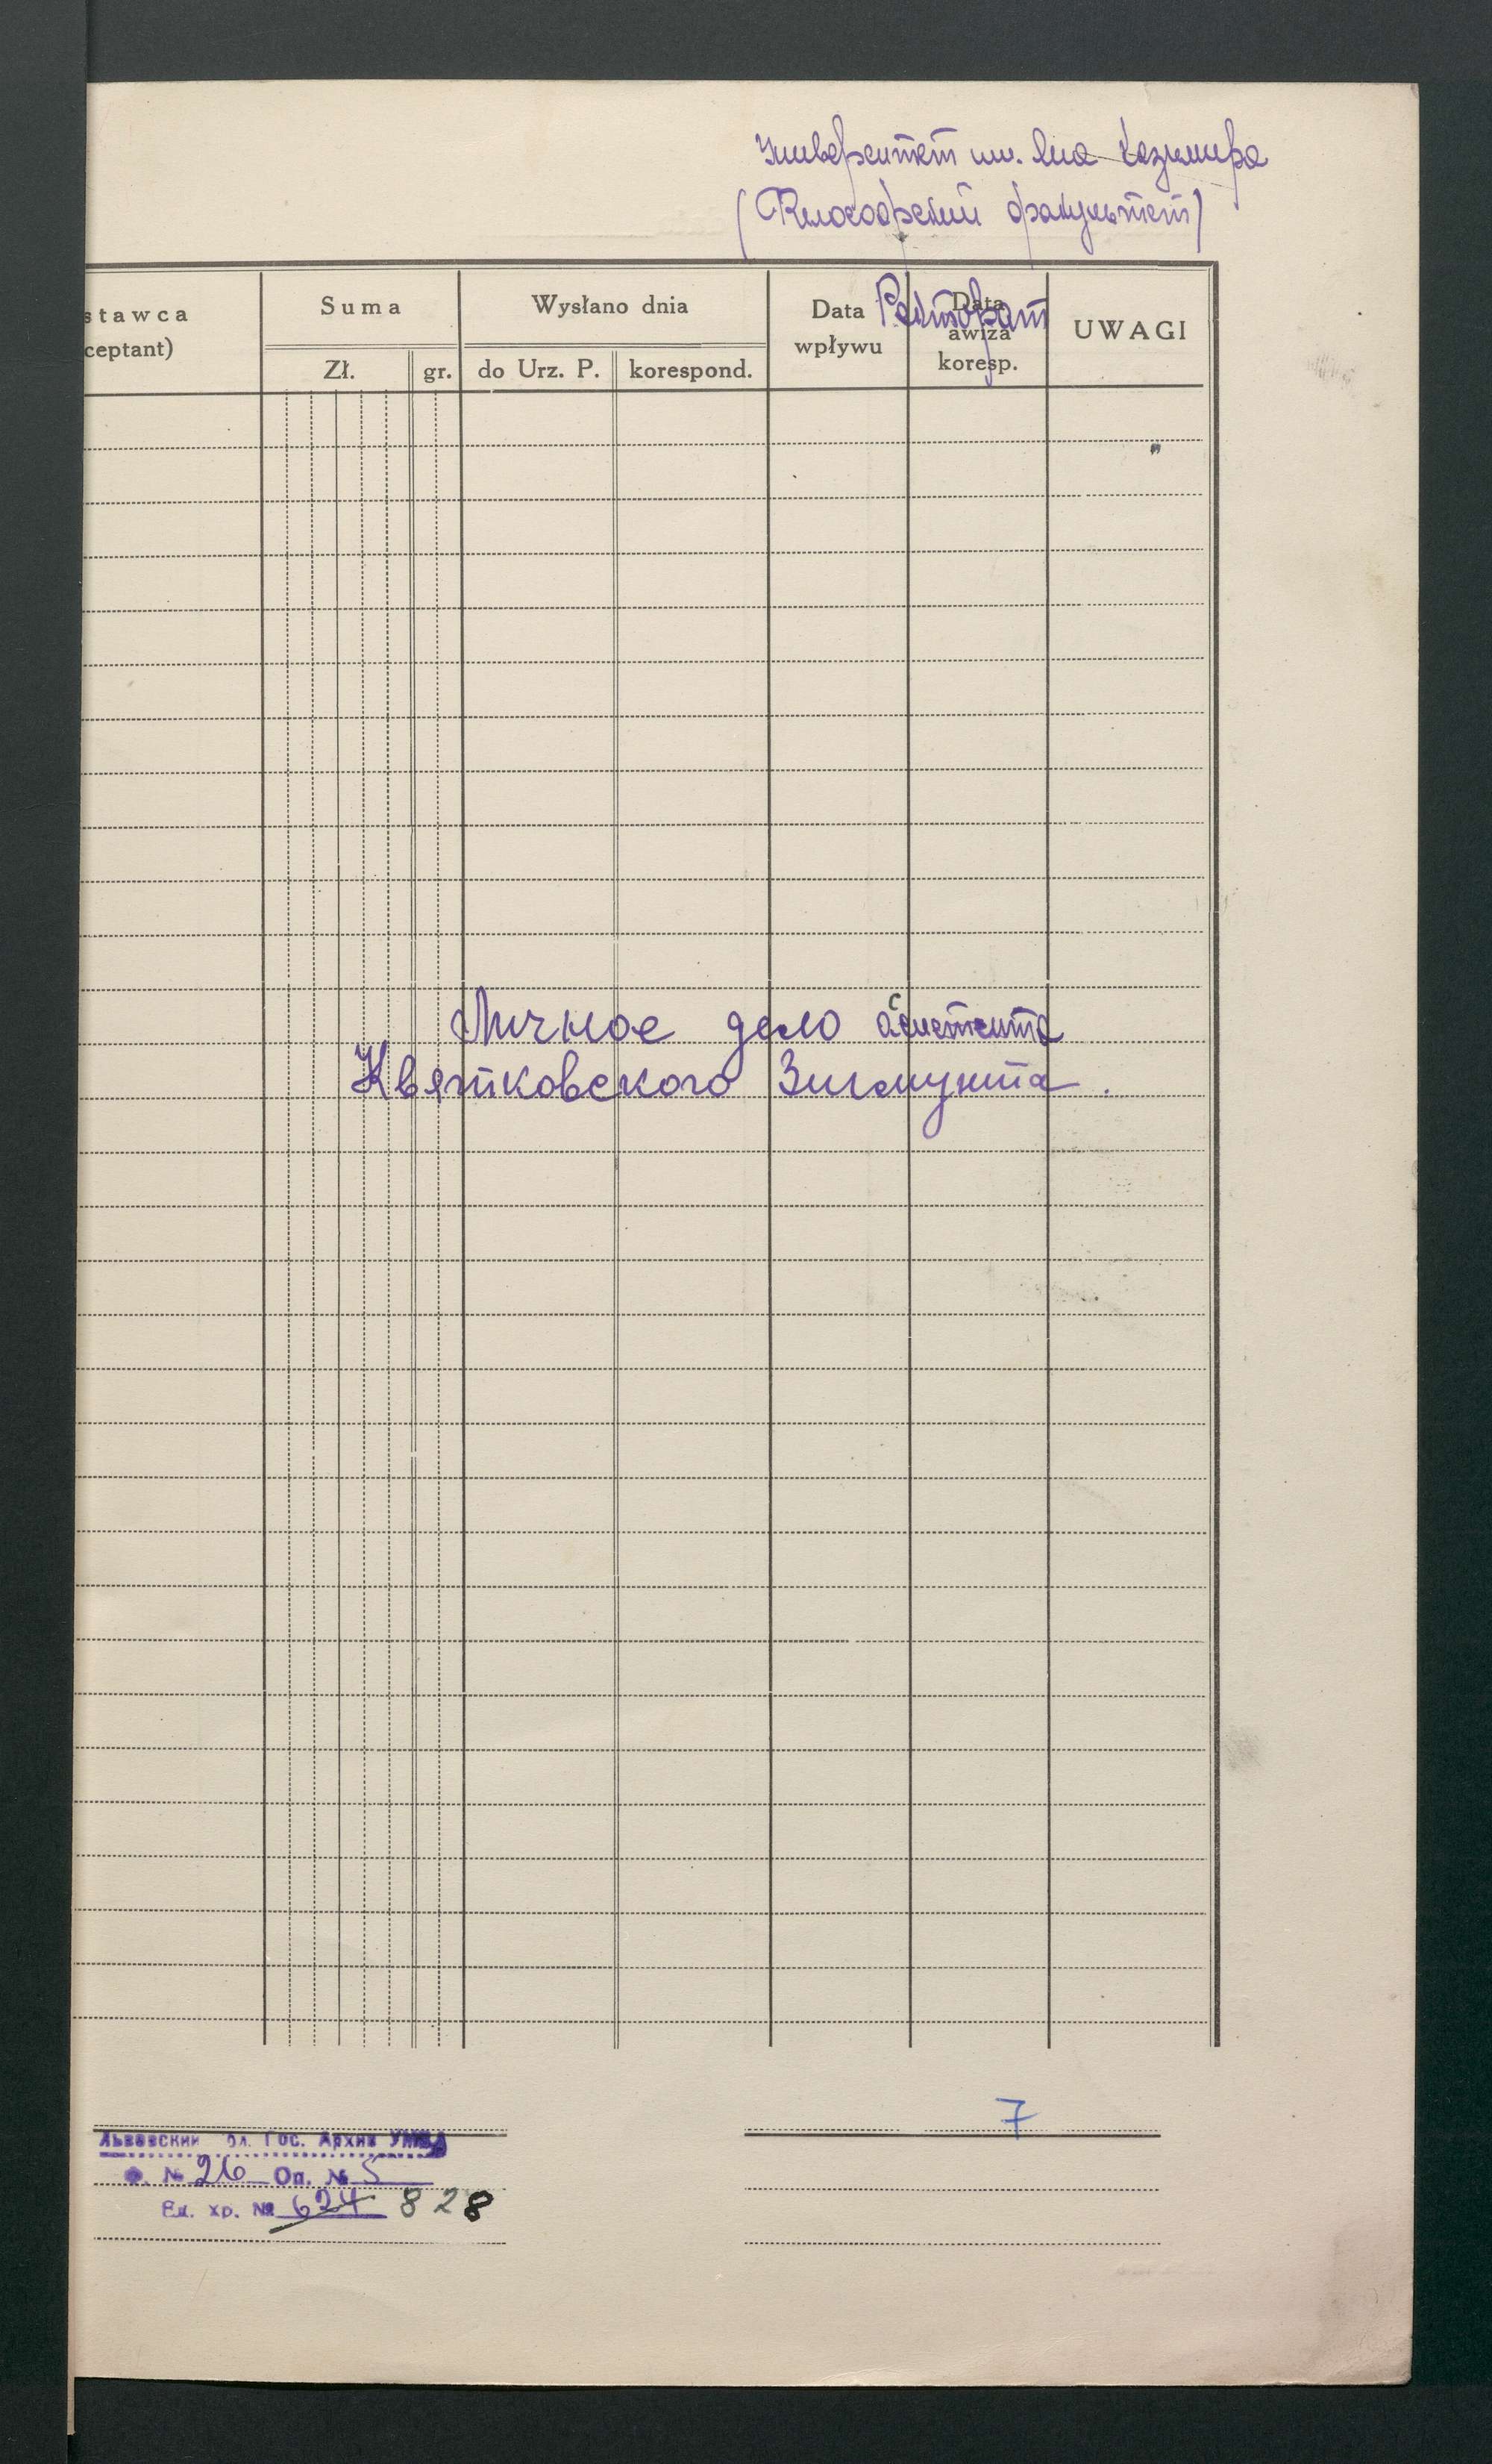 Университет им. Яна Казимира
(Философский факультет)
Ректорат
stawca
ceptant)
Suma
Zł.
gr.
Wysłano dnia
do Urz. P.
korespond.
Data
wpływu
Data
awiza
koresp.
UWAGI
Личное дело асистента
Квятковского Зигмунта.
7
Львовский ол. Гос. Архив УМВД
Ф. № 26 Оп. № 5
Ед. хр. № 624 828